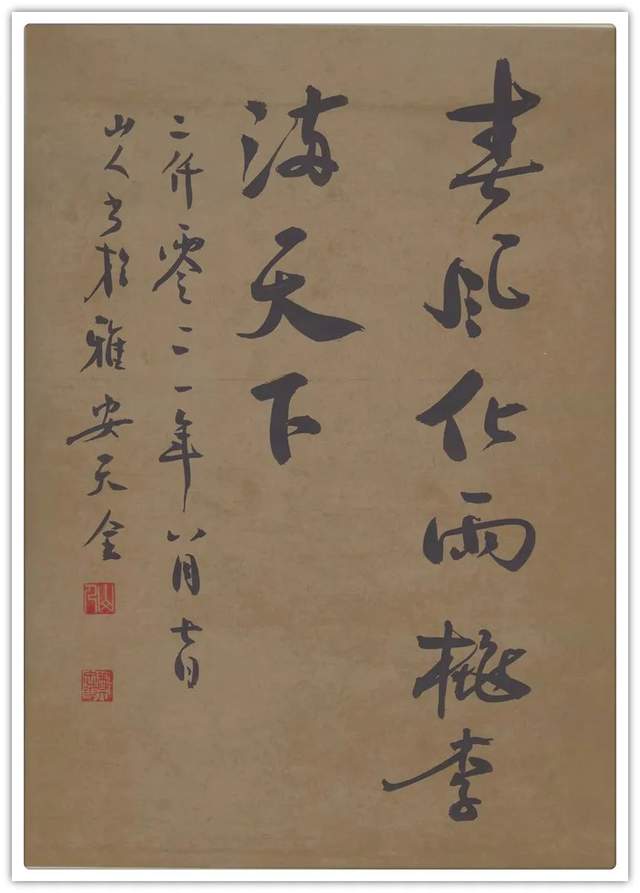 春风化雨桃李
满天下
二仟零二一年八月七日
山人书于雅安天全
山人